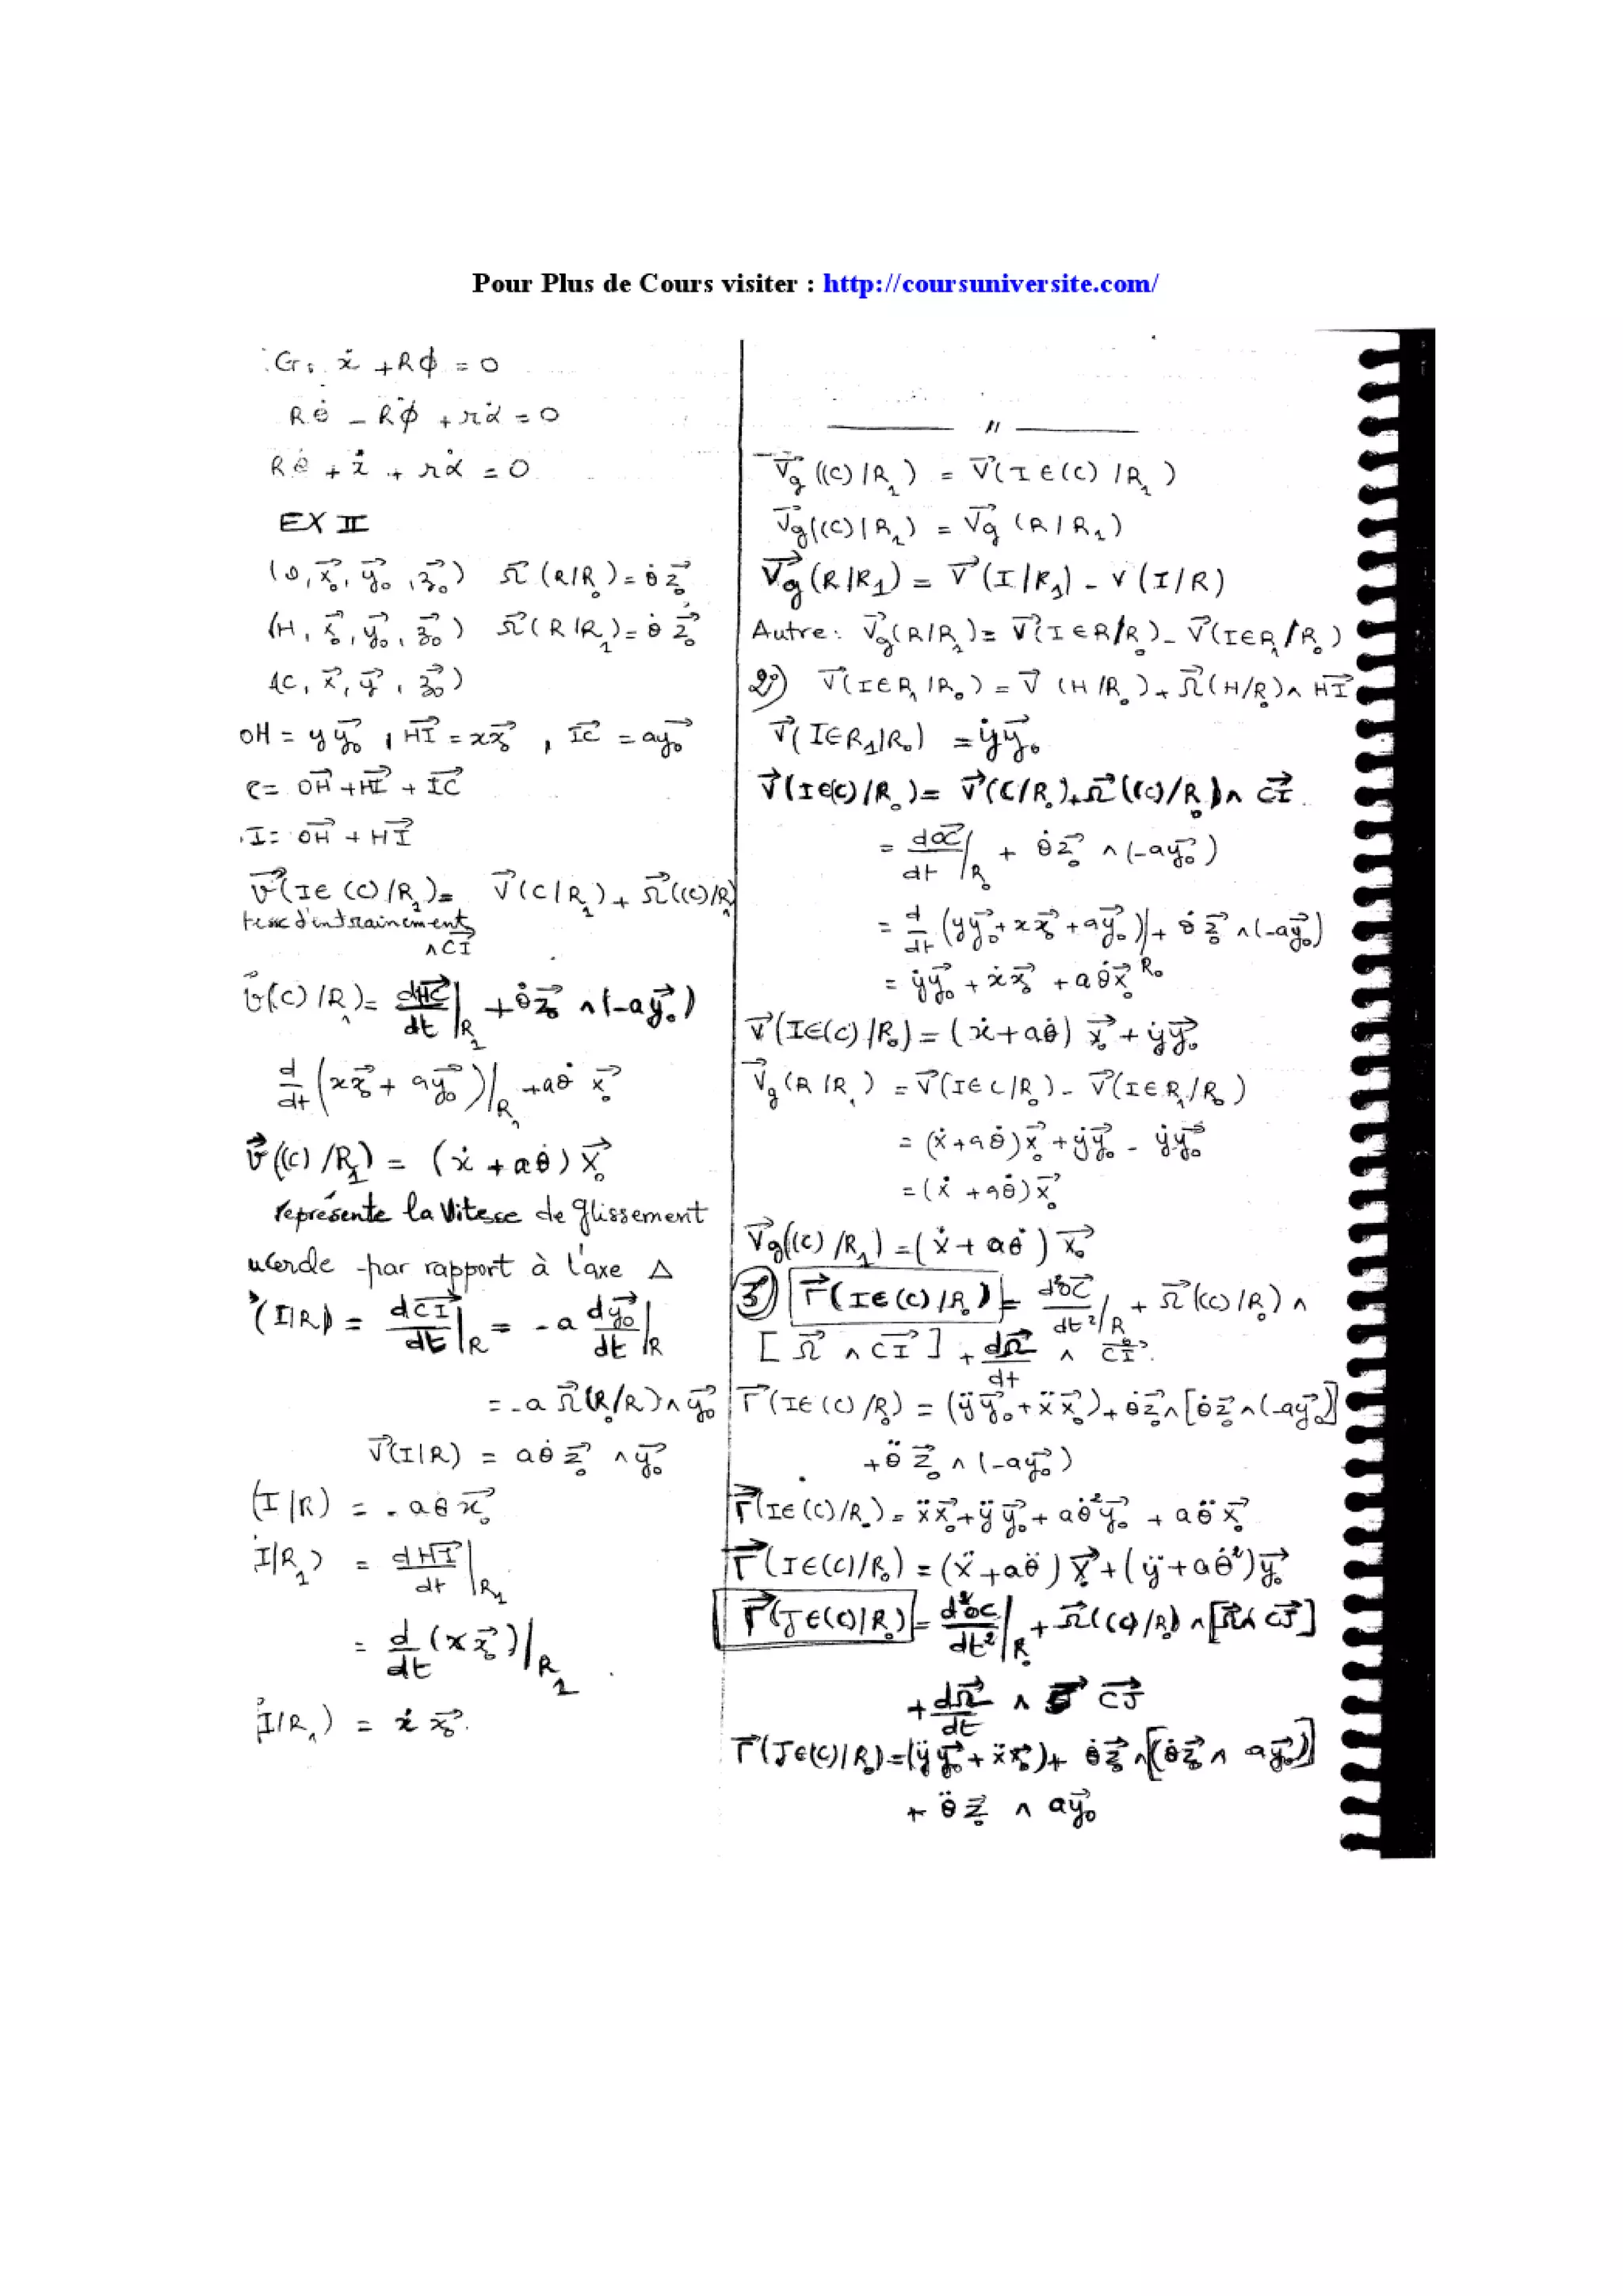 Pour Plus de Cours visiter : http://coursuniversite.com/
G: ẋ + Rϕ̇ = 0
Rθ̇ − Rϕ̇ + rα̇ = 0
Rθ̇ + ẋ + rα̇ = 0
EX II
(O, x₀⃗, y₀⃗, z₀⃗) Ω⃗(R/R₀) = θ̇ z₀⃗
(H, x₀⃗, y₀⃗, z₀⃗) Ω⃗(R/R₁) = θ̇ z₀⃗
(C, x⃗, y⃗, z₀⃗)
OH = y y₀⃗, HI⃗ = x x₀⃗, IC⃗ = a y₀⃗
C = OH⃗ + HI⃗ + IC⃗
I: OH⃗ + HI⃗
V⃗(I∈(C)/R₁) = V⃗(C/R₁) + Ω⃗((C)/R)
d'entrainement
∧ CI⃗
V⃗(C)/R₁) = dHC⃗/dt |R₁ + θ̇ z₀⃗ ∧ (−a y₀⃗)
d/dt (x x₀⃗ + a y₀⃗)|R₁ + aθ̇ x₀⃗
V⃗((C)/R₁) = (ẋ + aθ̇) x₀⃗
représente la Vitesse de glissement
par rapport à l'axe Δ
(I/R) = dCI⃗/dt |R = − a dy₀⃗/dt |R
= − a Ω⃗(R₀/R) ∧ y₀⃗
V⃗(I/R) = aθ̇ z₀⃗ ∧ y₀⃗
(I/R) = − aθ̇ x₀⃗
I/R₁) = dHI⃗/dt |R₁
= d/dt (x x₀⃗)|R₁
I/R₁) = ẋ x₀⃗.
—— " ——
V⃗g((C)/R₁) = V⃗(I∈(C)/R₁)
V⃗g((C)/R₁) = V⃗g(R/R₁)
V⃗g(R/R₁) = V⃗(I/R₁) − V(I/R)
Autre: V⃗g(R/R₁) = V⃗(I∈R/R₀) − V⃗(I∈R₁/R₀)
2°) V⃗(I∈R₁/R₀) = V⃗(H/R₀) + Ω⃗(H/R₀) ∧ HI⃗
V⃗(I∈R₁/R₀) = ẏ y₀⃗
V⃗(I∈(C)/R₀) = V⃗(C/R₀) + Ω⃗((C)/R₀) ∧ CI⃗
= dOC⃗/dt |R₀ + θ̇ z₀⃗ ∧ (−a y₀⃗)
= d/dt (y y₀⃗ + x x₀⃗ + a y₀⃗)|R₀ + θ̇ z₀⃗ ∧ (−a y₀⃗)
= ẏ y₀⃗ + ẋ x₀⃗ + aθ̇ x₀⃗
V⃗(I∈(C)/R₀) = (ẋ + aθ̇) x₀⃗ + ẏ y₀⃗
V⃗g(R/R₁) = V⃗(I∈C/R₀) − V⃗(I∈R₁/R₀)
= (ẋ + aθ̇) x₀⃗ + ẏ y₀⃗ − ẏ y₀⃗
= (ẋ + aθ̇) x₀⃗
V⃗g((C)/R₁) = (ẋ + aθ̇) x₀⃗
3) Γ⃗(I∈(C)/R₀) = d²OC⃗/dt² |R + Ω⃗((C)/R₀) ∧
[Ω⃗ ∧ CI⃗] + dΩ⃗/dt ∧ CI⃗.
Γ⃗(I∈(C)/R₀) = (ÿ y₀⃗ + ẍ x₀⃗) + θ̇ z₀⃗ ∧ [θ̇ z₀⃗ ∧ (−a y₀⃗)]
+ θ̈ z₀⃗ ∧ (−a y₀⃗)
Γ⃗(I∈(C)/R₀) = ẍ x₀⃗ + ÿ y₀⃗ + aθ̇² y₀⃗ + aθ̈ x₀⃗
Γ⃗(I∈(C)/R₀) = (ẍ + aθ̈) x₀⃗ + (ÿ + aθ̇²) y₀⃗
Γ⃗(J∈(C)/R₀) = d²OC/dt² |R₀ + Ω⃗((C)/R₀) ∧ [Ω⃗ ∧ CJ⃗]
+ dΩ⃗/dt ∧ CJ⃗
Γ⃗(J∈(C)/R₀) = (ÿ y₀⃗ + ẍ x₀⃗) + θ̇ z₀⃗ ∧ [(θ̇ z₀⃗ ∧ a y₀⃗)]
+ θ̈ z₀⃗ ∧ a y₀⃗